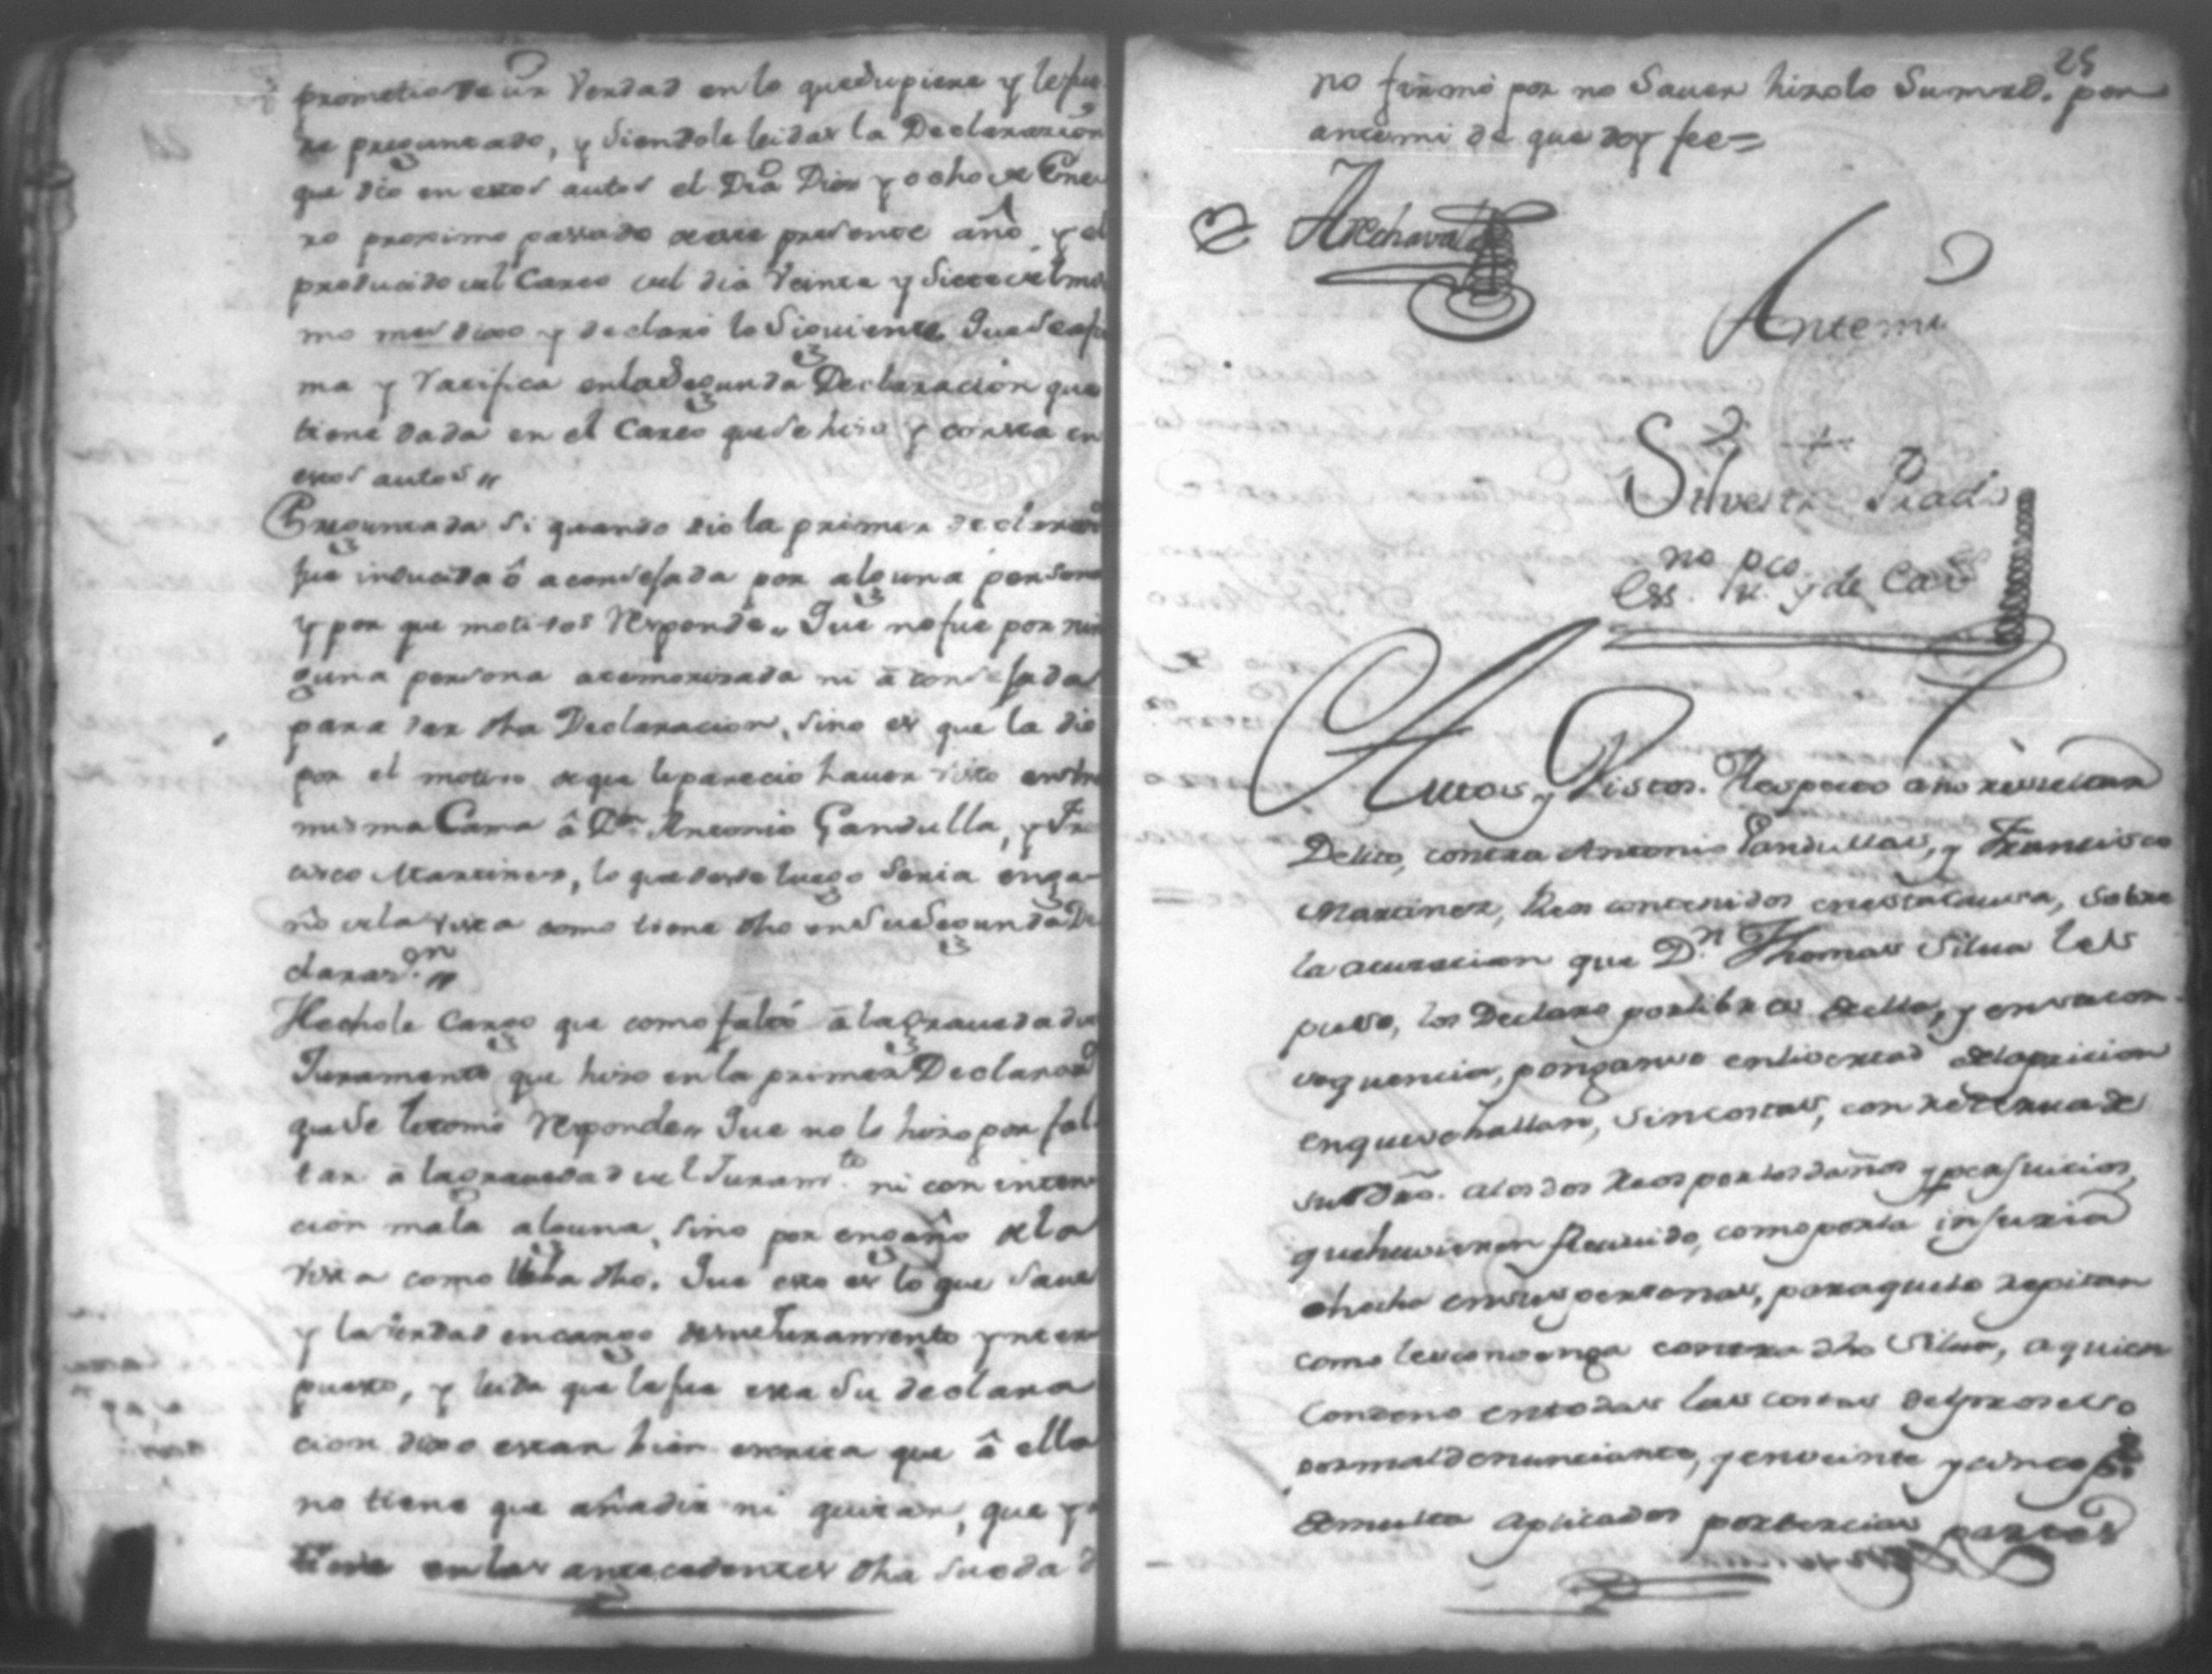 prometio decir Verdad en lo que supiere y le fue
re preguntado, y siendole leidas la Declaracion
que dio en estos autos el Dia Dies y ocho de Ene
ro proximo passado deste presente año, y el
producido del Careo del dia Veinte y siete del mis
mo mes dixo y declaró lo Siguiente Que se afir
ma y ratifica en la Segunda Declaracion que
tiene dada en el Careo que se hiso y consta en
estos autos,,
Preguntada si quando dio la primer declaraon
fue inducida ô aconsejada por alguna persona
y por que motivos Responde,, Que no fue por nin
guna persona atemorisada ni â consejada
para dar dha Declaracion, sino es que la dio
por el motivo de que le parecio haver visto en una
misma Cama â Dn Antonio Gandulla, y Fran
cisco Martines, lo que desde luego seria enga-
ño de la vista como tiene dho en su Segunda De
claraon.,,
Hechole Cargo que como faltó â la gravedad del
Juramento que hiso en la primer Declaraon
que se le tomó Responde,, Que no lo hiso por fal
tar â la gravedad del Juramto ni con inten
cion mala alguna, sino por engaño de la
vista como lleba dho. Que esto es lo que save
y la verdad en cargo de su Juramento ynter
puesto, y leida que le fue esta su declara
cion dixo estar bien escrita que â ella
no tiene que añadir ni quitar, que ya
tiene en las antecedentes dha su edad
25
no firmó por no Saver hisolo Sumrd. por
antemi de que doy fee=
Arechavala
Antemi
Silvestre Prado
no pco.
Ess. Pu. y de Cavo
Autos y Vistos. Respecto a no resultar
Delito, contra Antonio Gandullas, y Francisco
Martinez, Reos contenidos en esta causa, sobre
la acusacion que Dn. Thomas Silva les
puso, los Declaro por libres de ella, y en su con
sequencia, ponganse en livertad de la pricion
en que se hallan, sin costas, con reserva de
su dro. a los dos Reos por los daños y perjuicios,
que huvieren Recivido, como por la injuria
echa en sus personas, para que lo repitan
como les convenga contra dho Silva, a quien
Condeno en todas las costas del proseso
por mal denunciante, y en veinte y cinco ps.
de multa aplicados por tercias partes